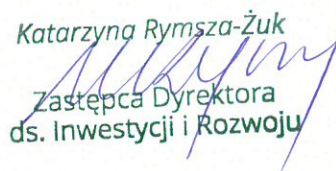 Katarzyna Rymsza-Żuk
Zastępca Dyrektora
ds. Inwestycji i Rozwoju